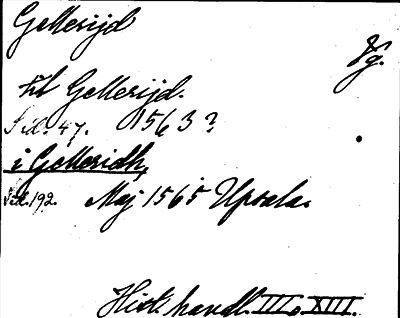 Gellerijd
Vg.
till Gellerijd.
Sid. 47. 1563?
i Gelleridh,
Sid. 192. Maj 1565 Upsala.
Hist. handl. III o XIII.